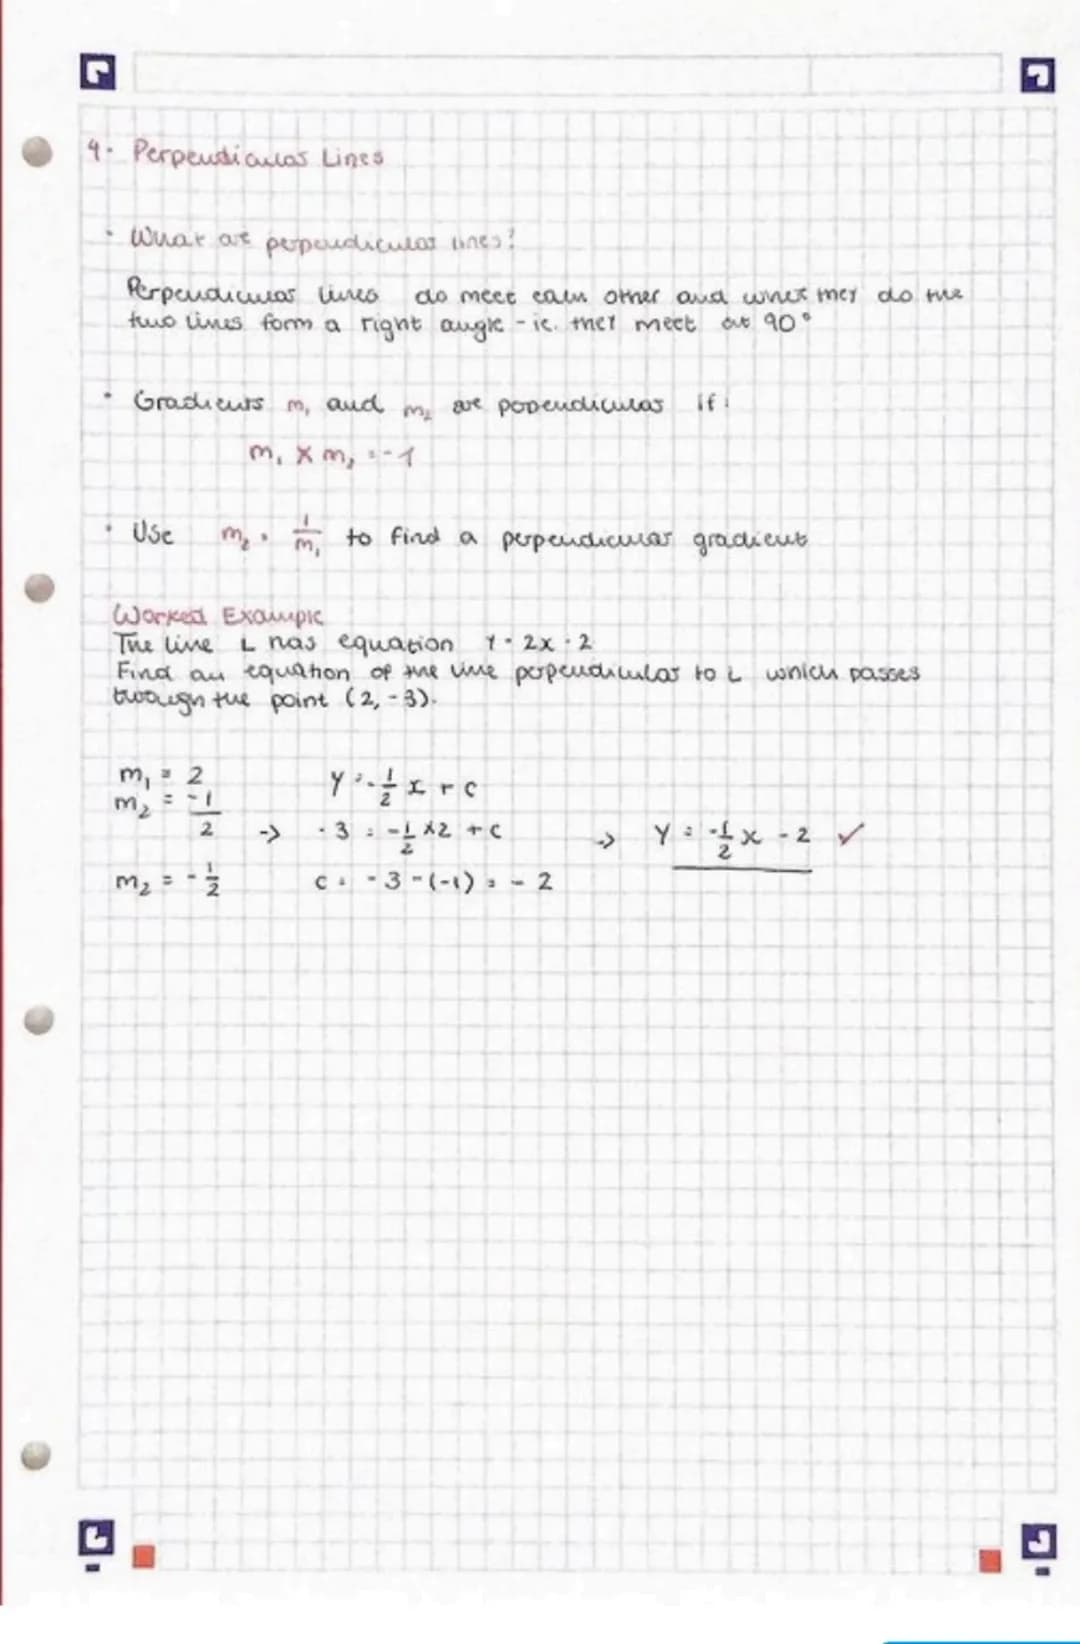 4. Perpendicular Lines
• What are perpendicular lines?
Perpendicular lines do meet each other and when they do the
two lines form a right angle - ie. they meet at 90°
• Gradients m₁ and m₂ are perpendicular if:
m₁ × m₂ = -1
• Use m₂ = 1/m₁ to find a perpendicular gradient
Worked Example
The line L has equation y = 2x - 2
Find an equation of the line perpendicular to L which passes
through the point (2, -3).
m₁ = 2
y = -1/2 x + c
m₂ = -1/2 -> -3 = -1/2 × 2 + c -> y = -1/2 x - 2 ✓
m₂ = -1/2
c = -3 - (-1) = -2